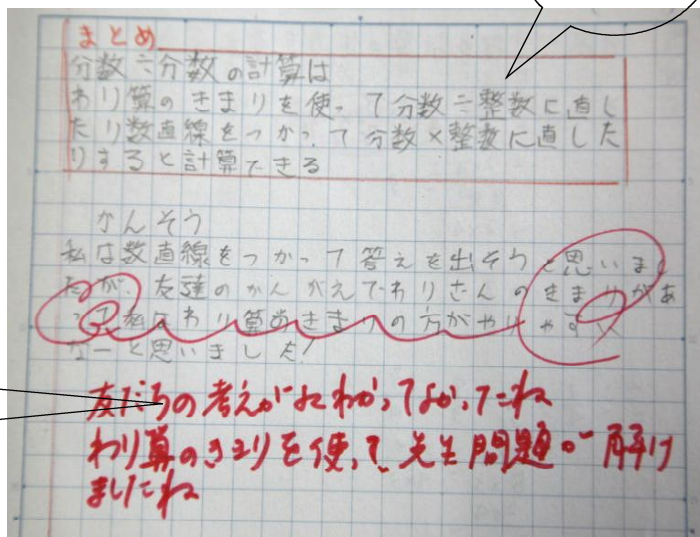 まとめ
分数÷分数の計算は
わり算のきまりを使って分数÷整数に直し
たり数直線をつかって分数×整数に直した
りすると計算できる
かんそう
私は数直線をつかって答えを出そうと思いまし
たが、友達のかんがえでわりさんのきまりがあ
って私はわり算のきまりの方がやりやすい
なーと思いました!
友だちの考えがよくわかってよかったね
わり算のきまりを使って、先生問題が解け
ましたね